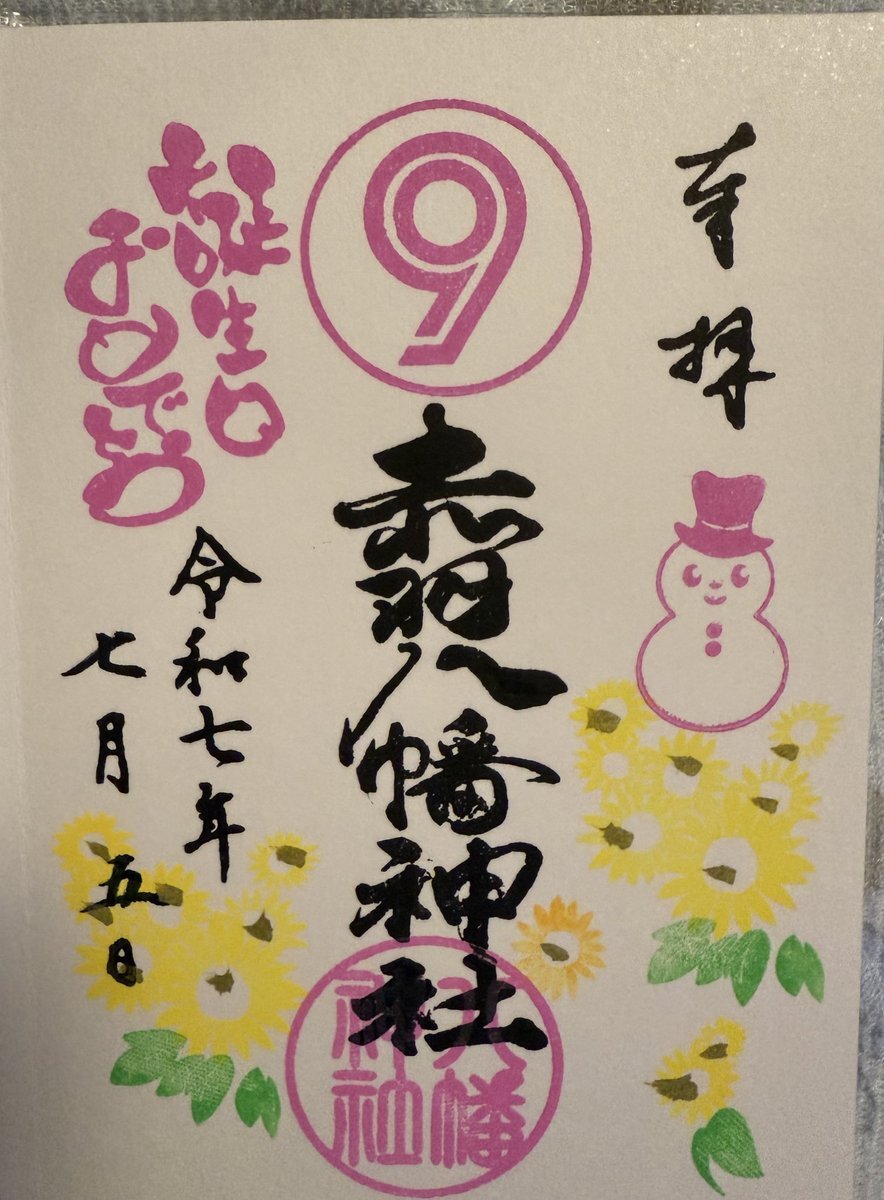 奉拝
⑨
赤羽八幡神社
八幡
神社
お誕生日
おめでとう
令和七年
七月五日